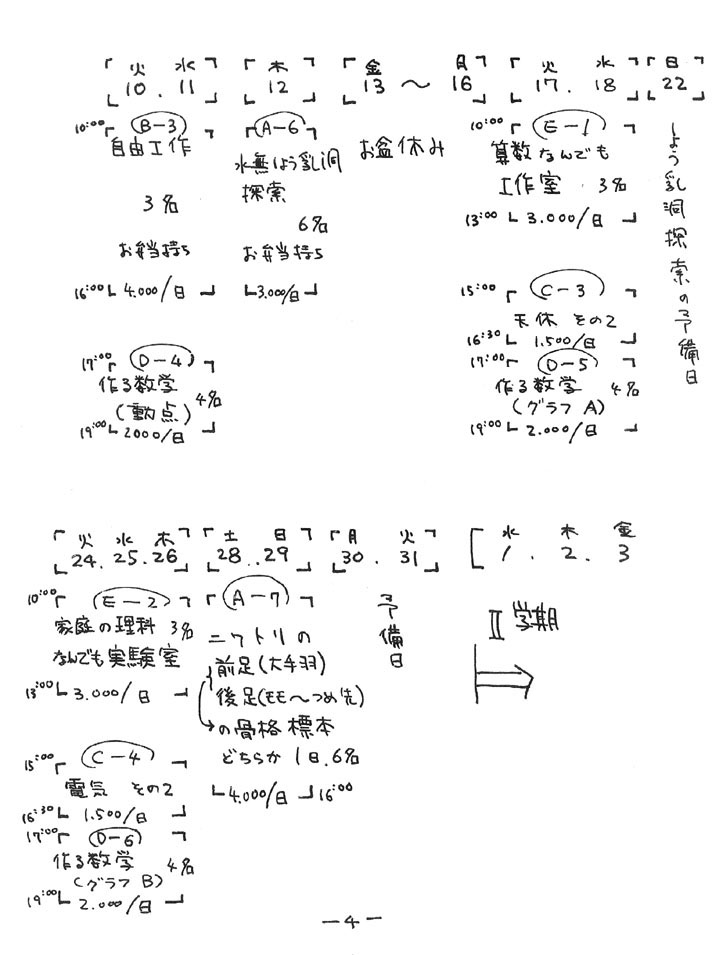 火 水
10. 11
木
12
金 月
13 〜 16
火 水
17. 18
日
22
10:00 B-3
自由工作
3名
お弁当持ち
16:00 4.000/日
A-6
水無しょう乳洞
探索
6名
お弁当持ち
3.000/日
お盆休み
10:00 E-1
算数なんでも
工作室 3名
13:00 3.000/日
しょう乳洞探索の予備日
17:00 D-4
作る数学
(動点) 4名
19:00 2000/日
15:00 C-3
天体 その2
16:30 1.500/日
17:00 D-5
作る数学 4名
(グラフ A)
19:00 2.000/日
火 水 木
24. 25. 26
土 日
28..29
月 火
30. 31
水 木 金
1. 2. 3
10:00 E-2
家庭の理科 3名
なんでも実験室
13:00 3.000/日
A-7
ニワトリの
前足(大手羽)
後足(モモ〜つめ先)
の骨格標本
どちらか 1日.6名
4.000/日 16:00
予備日
II 学期
15:00 C-4
電気 その2
16:30 1.500/日
17:00 D-6
作る数学 4名
(グラフ B)
19:00 2.000/日
-4-